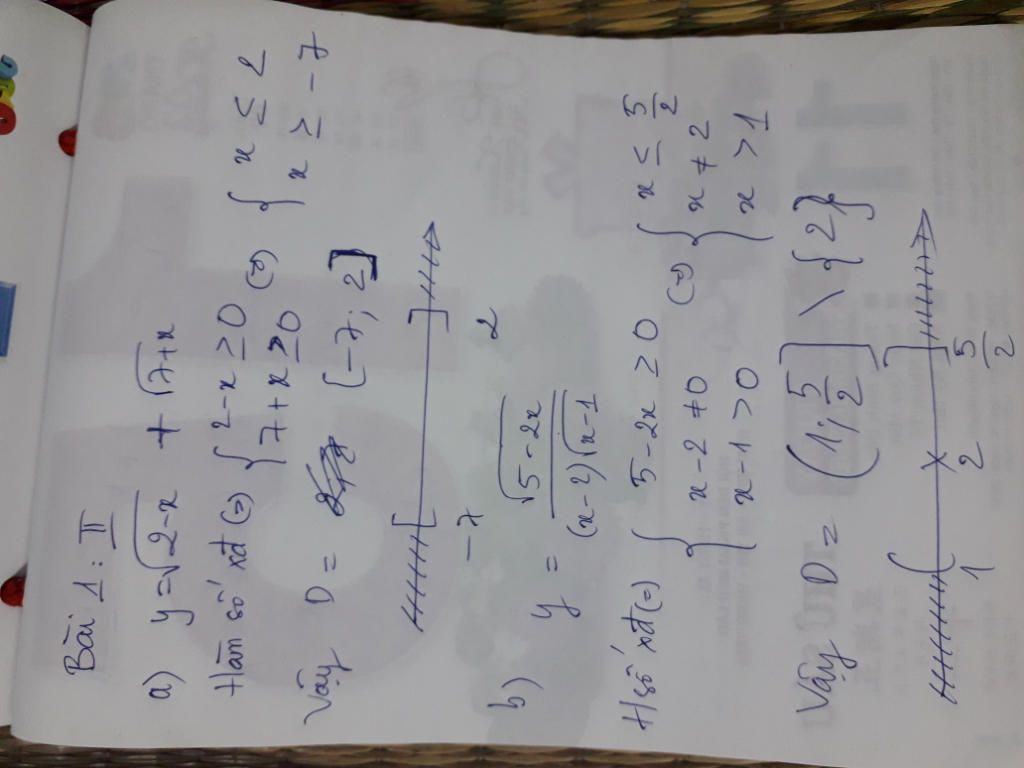 Bài 1: II
a) y = √(2-x) + √(7+x)
Hàm số xđ (=) { 2-x ≥ 0 (=) { x ≤ 2
7+x ≥ 0 x ≥ -7
Vậy D = [-7; 2]
-7 2
b) y = √(5-2x) / (x-2)√(x-1)
Hsố xđ (=) { 5-2x ≥ 0 (=) { x ≤ 5/2
x-2 ≠ 0 x ≠ 2
x-1 > 0 x > 1
Vậy D = (1; 5/2] \ {2}
1 2 5/2